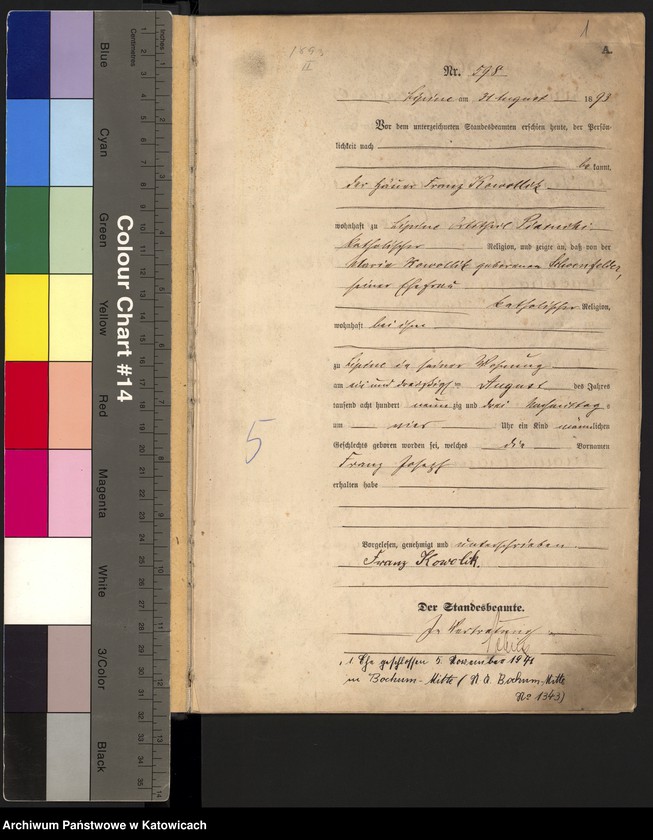 1
1893
II
A.
Nr. 598
Lipine am 31 August 1893
Vor dem unterzeichneten Standesbeamten erschien heute, der Persön-
lichkeit nach
be kannt,
der Häuer Franz Kowollik
wohnhaft zu Lipine
katholischer Religion, und zeigte an, daß von der
Maria Kowollik geborenen Schoenfelder,
seiner Ehefrau
katholischer Religion,
wohnhaft bei ihm
zu Lipine in seiner Wohnung
am ein und dreißigsten August des Jahres
tausend acht hundert neun zig und drei Nachmittags
um vier Uhr ein Kind männlichen
Geschlechts geboren worden sei, welches die Vornamen
Franz Josef
erhalten habe
5
Vorgelesen, genehmigt und unterschrieben
Franz Kowolik.
Der Standesbeamte.
In Vertretung
1. Ehe geschlossen 5. November 1941
in Bochum-Mitte (St. A. Bochum-Mitte
No 1343)
Colour Chart #14
Blue
Cyan
Green
Yellow
Red
Magenta
White
3/Color
Black
Centimetres
Inches
Archiwum Państwowe w Katowicach